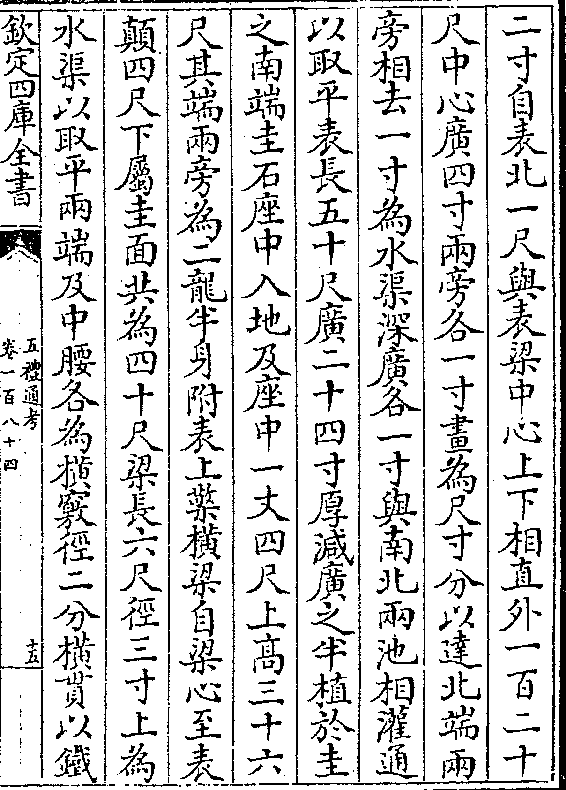 二寸自表北一尺與表梁中心上下相直外一百二十
尺中心廣四寸兩旁各一寸畫為尺寸分以達北端兩
旁相去一寸為水渠深廣各一寸與南北兩池相灌通
以取平表長五十尺廣二十四寸厚減廣之半植於圭
之南端圭石座中入地及座中一丈四尺上高三十六
尺其端兩旁為二龍半身附表上擎橫梁自梁心至表
顛四尺下屬圭面共為四十尺梁長六尺徑三寸上為
水渠以取平兩端及中腰各為橫竅徑二分橫貫以鐵
欽定四庫全書
五禮通考
卷一百八十四
十五